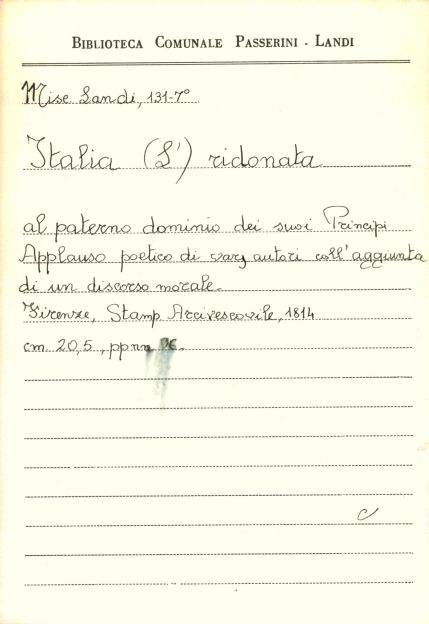 BIBLIOTECA COMUNALE PASSERINI - LANDI
Misc Landi, 131-7°
Italia (L') ridonata
al paterno dominio dei suoi Principi
Applauso poetico di varj autori coll'aggiunta
di un discorso morale.
Firenze, Stamp Arcivescovile, 1814
cm 20,5, pp nn
C